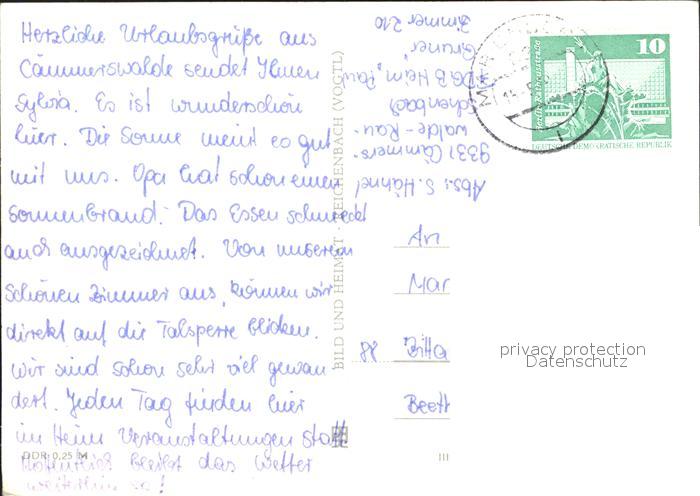 Herzliche Urlaubsgrüße aus
Cämmerswalde sendet Ihnen
Sylvia. Es ist wunderschön
hier. Die Sonne meint es gut
mit uns. Opa hat schon einen
Sonnenbrand. Das Essen schmeckt
auch ausgezeichnet. Von unserem
schönen Zimmer aus, können wir
direkt auf die Talsperre blicken.
Wir sind schon sehr viel gewan-
dert. Jeden Tag finden hier
im Heim Veranstaltungen statt
Hoffentlich bleibt das Wetter
weiterhin so!
DDR 0,25 M
BILD UND HEIMAT REICHENBACH (VOGTL)
Abs.: S. Hähnel
9331 Cämmers-
walde-Rau-
schenbach
FDGB Heim "Rau
Gruner
Zimmer 210
10
DEUTSCHE DEMOKRATISCHE REPUBLIK
An
Mar
88 Zitta
Beeth
III
privacy protection
Datenschutz